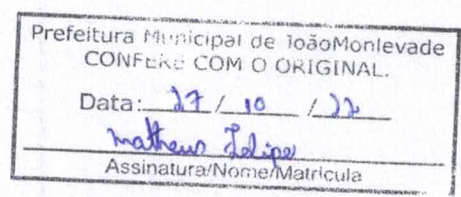 Prefeitura Municipal de JoãoMonlevade
CONFERE COM O ORIGINAL.
Data: 27 / 10 / 22
Matheus Felipe
Assinatura/Nome/Matrícula